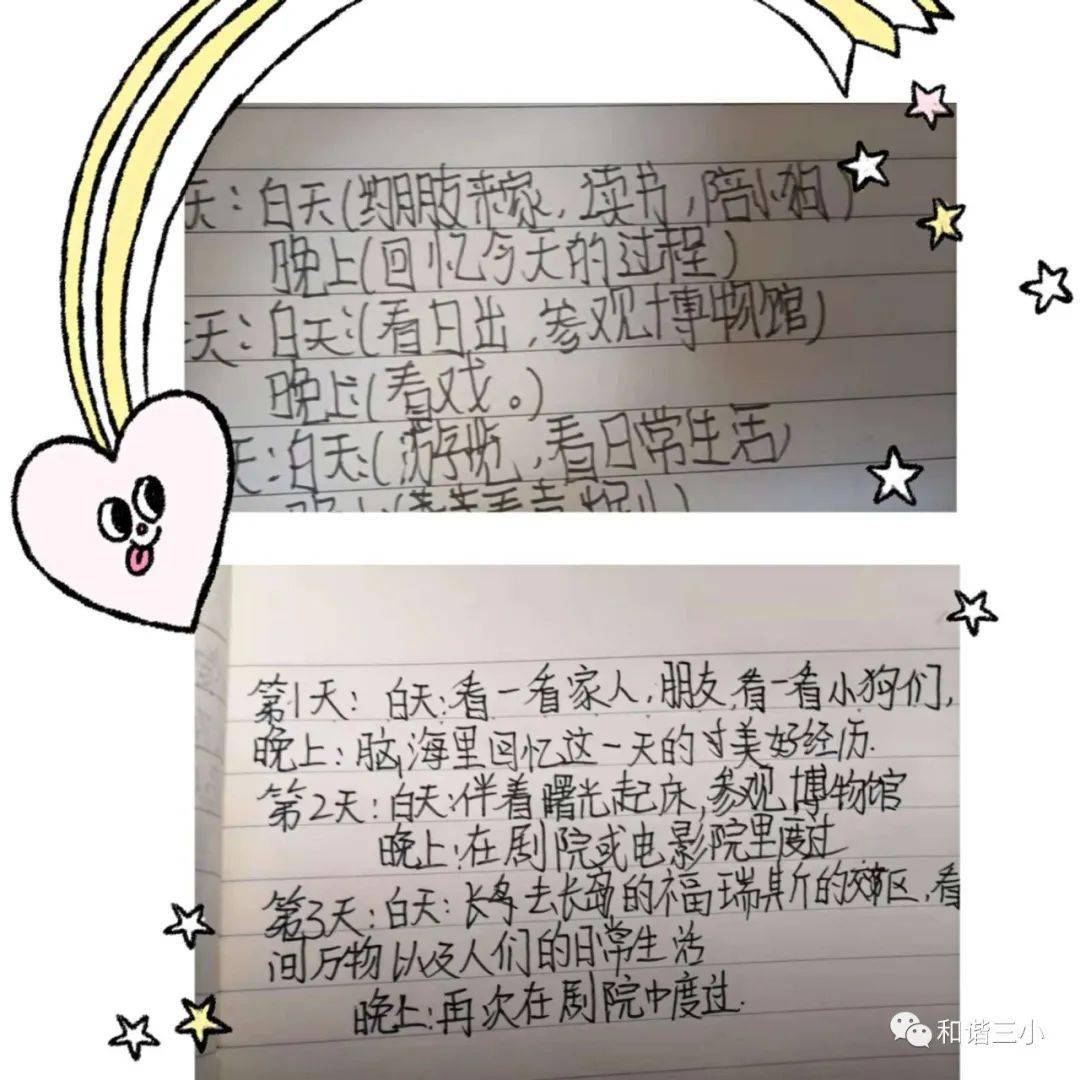 天：白天(约朋友来家，读书，陪小狗)
晚上(回忆今天的过程)
天：白天：(看日出，参观博物馆)
晚上：(看戏。)
天：白天：(游览，看日常生活)
第1天：白天：看一看家人，朋友，看一看小狗们，
晚上：脑海里回忆这一天的美好经历.
第2天：白天：伴着曙光起床，参观博物馆
晚上：在剧院或电影院里度过
第3天：白天：去长岛的福瑞斯的郊区，看
间万物以及人们的日常生活
晚上：再次在剧院中度过.
和谐三小